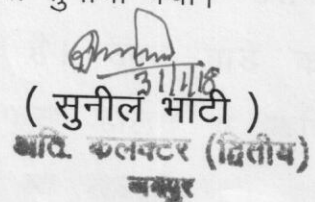 31/1/18
( सुनील भाटी )
अति. कलक्टर (द्वितीय)
जयपुर